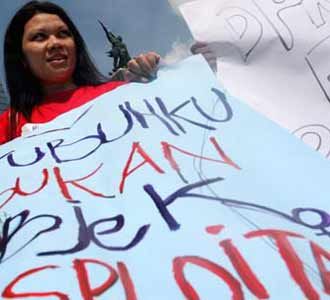 UBUHKU
BUKAN
BJEK
SPLOITA